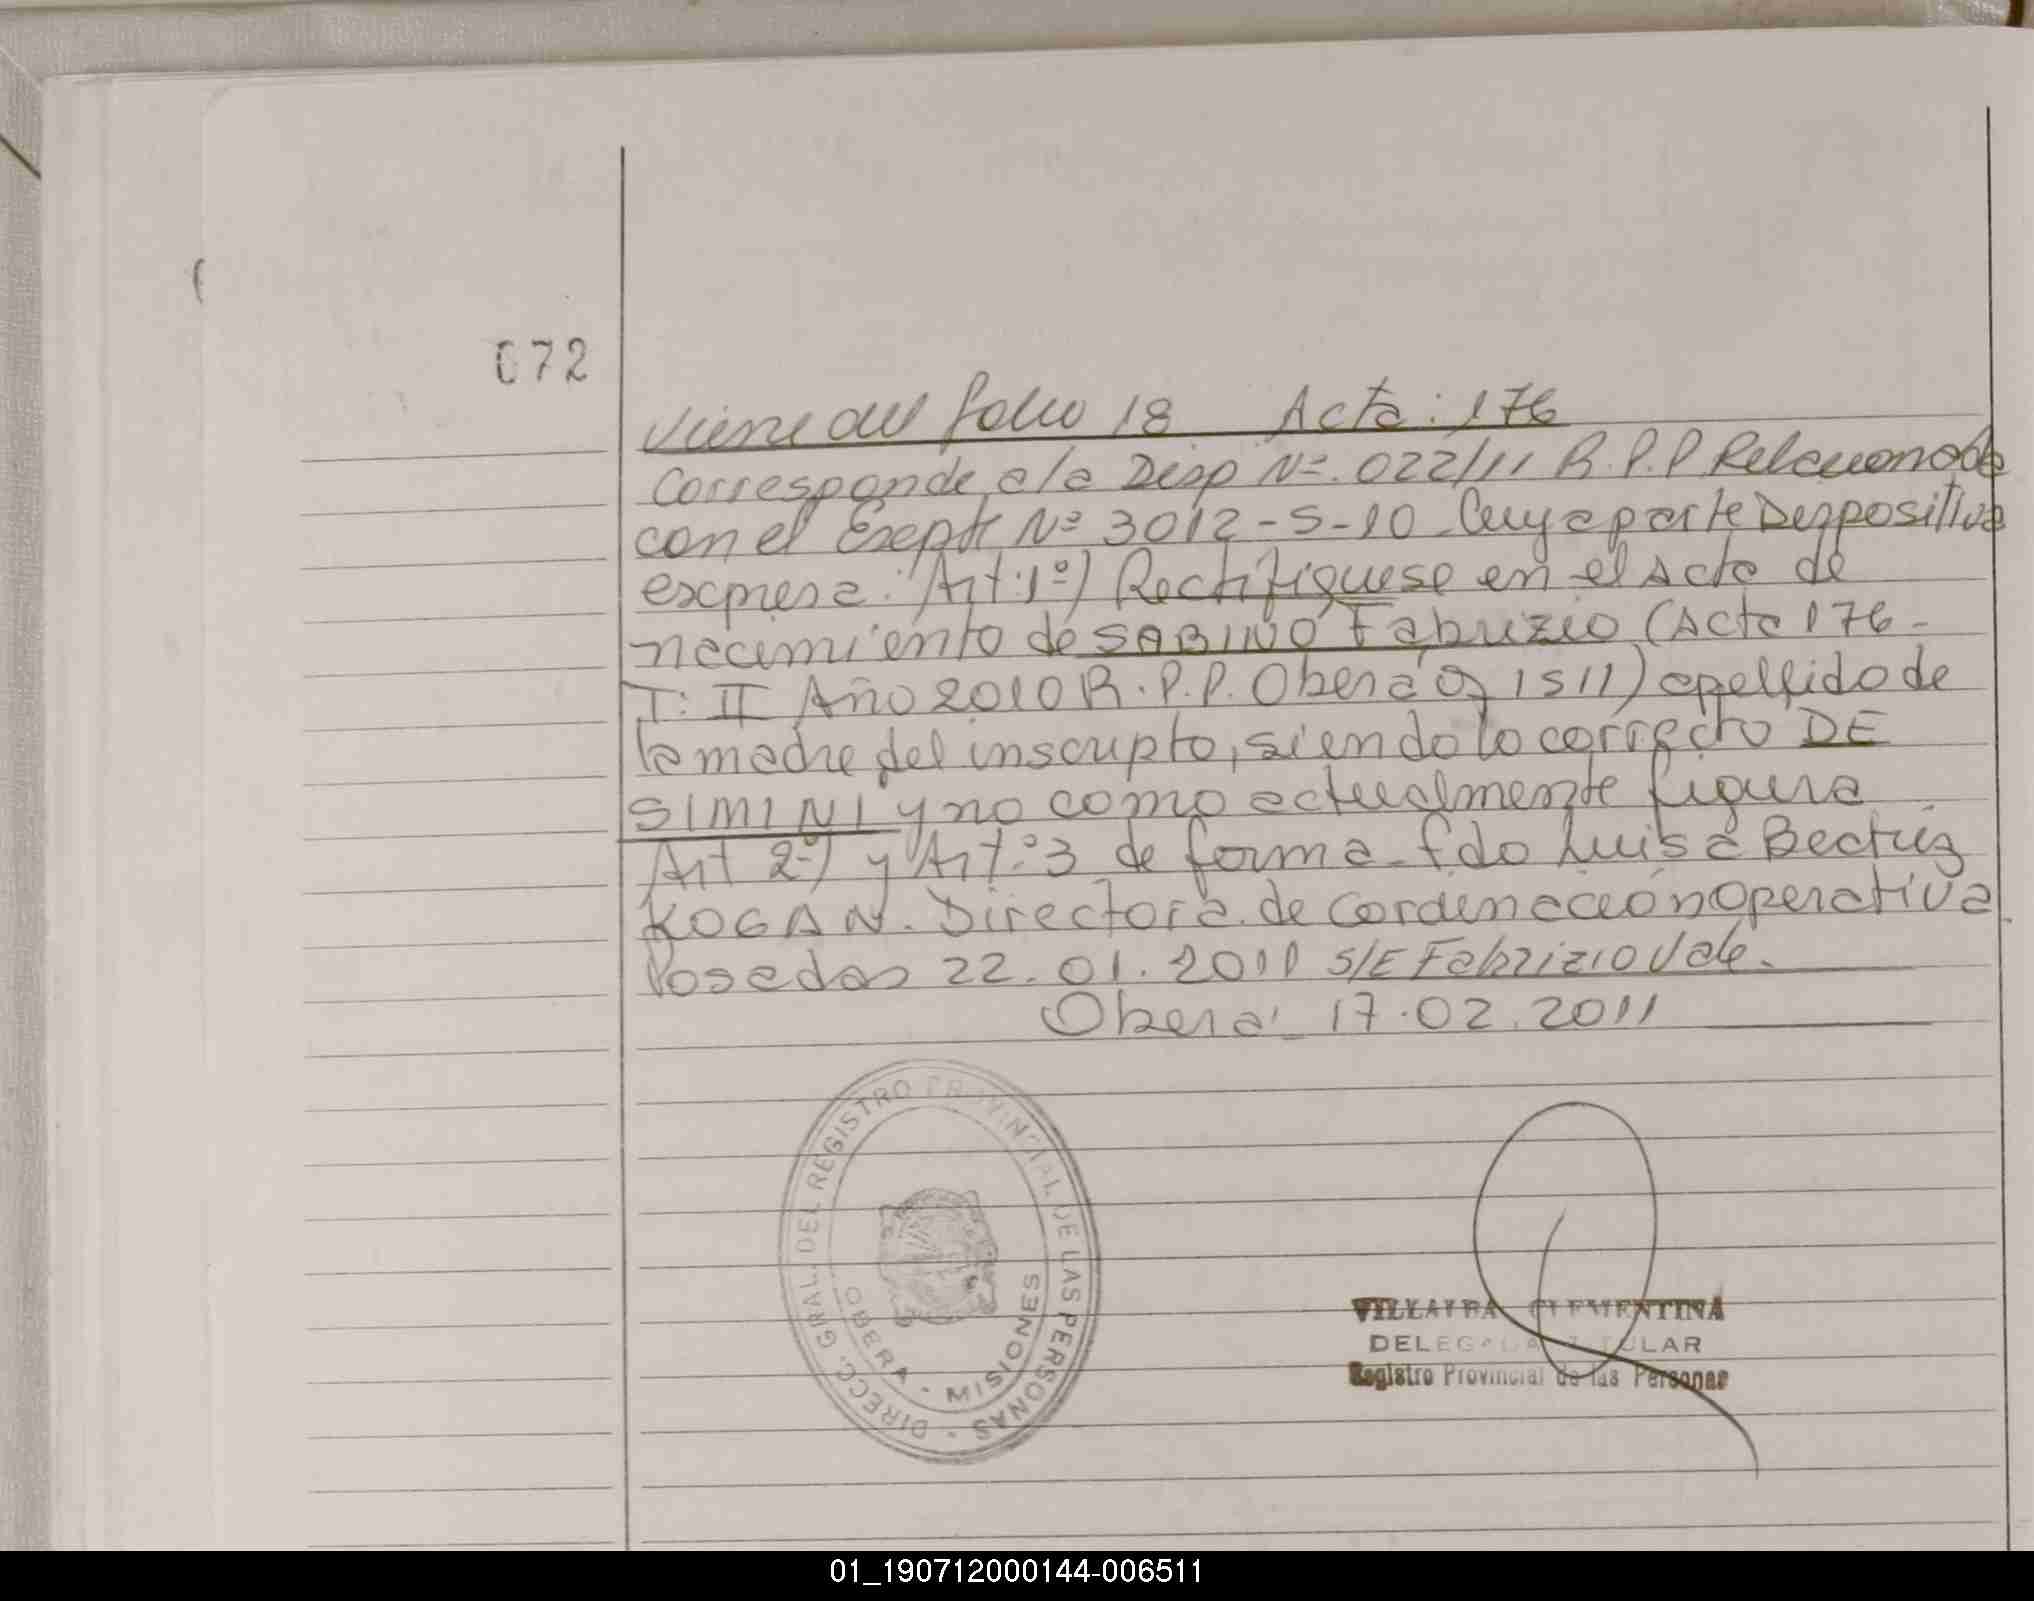 072
Viene del folio 18 Acta: 176
Corresponde a la Disp Nº. 022/11 R.P.P Relacionada
con el Expte Nº 3012-S-10. Cuya parte Dispositiva
expresa: Art:1º) Rectifiquese en el Acta de
nacimiento de SABINO Fabrizio (Acta 176-
T: II Año 2010 R.P.P. Oberá 1511) apellido de
la madre del inscripto, siendo lo correcto DE
SIMINI y no como actualmente figura
Art 2º) y Art.º3 de forma. fdo Luisa Beatriz
KOGAN. Directora de Cordinacion Operativa
Posadas 22.01.2011 S/E Fabrizio Vale.
Oberá 17.02.2011
DIRECC. GRAL. DEL REGISTRO PROVINCIAL DE LAS PERSONAS
OBERA - MISIONES
VILLALBA CLEMENTINA
DELEGADA TITULAR
Registro Provincial de las Personas
01_190712000144-006511